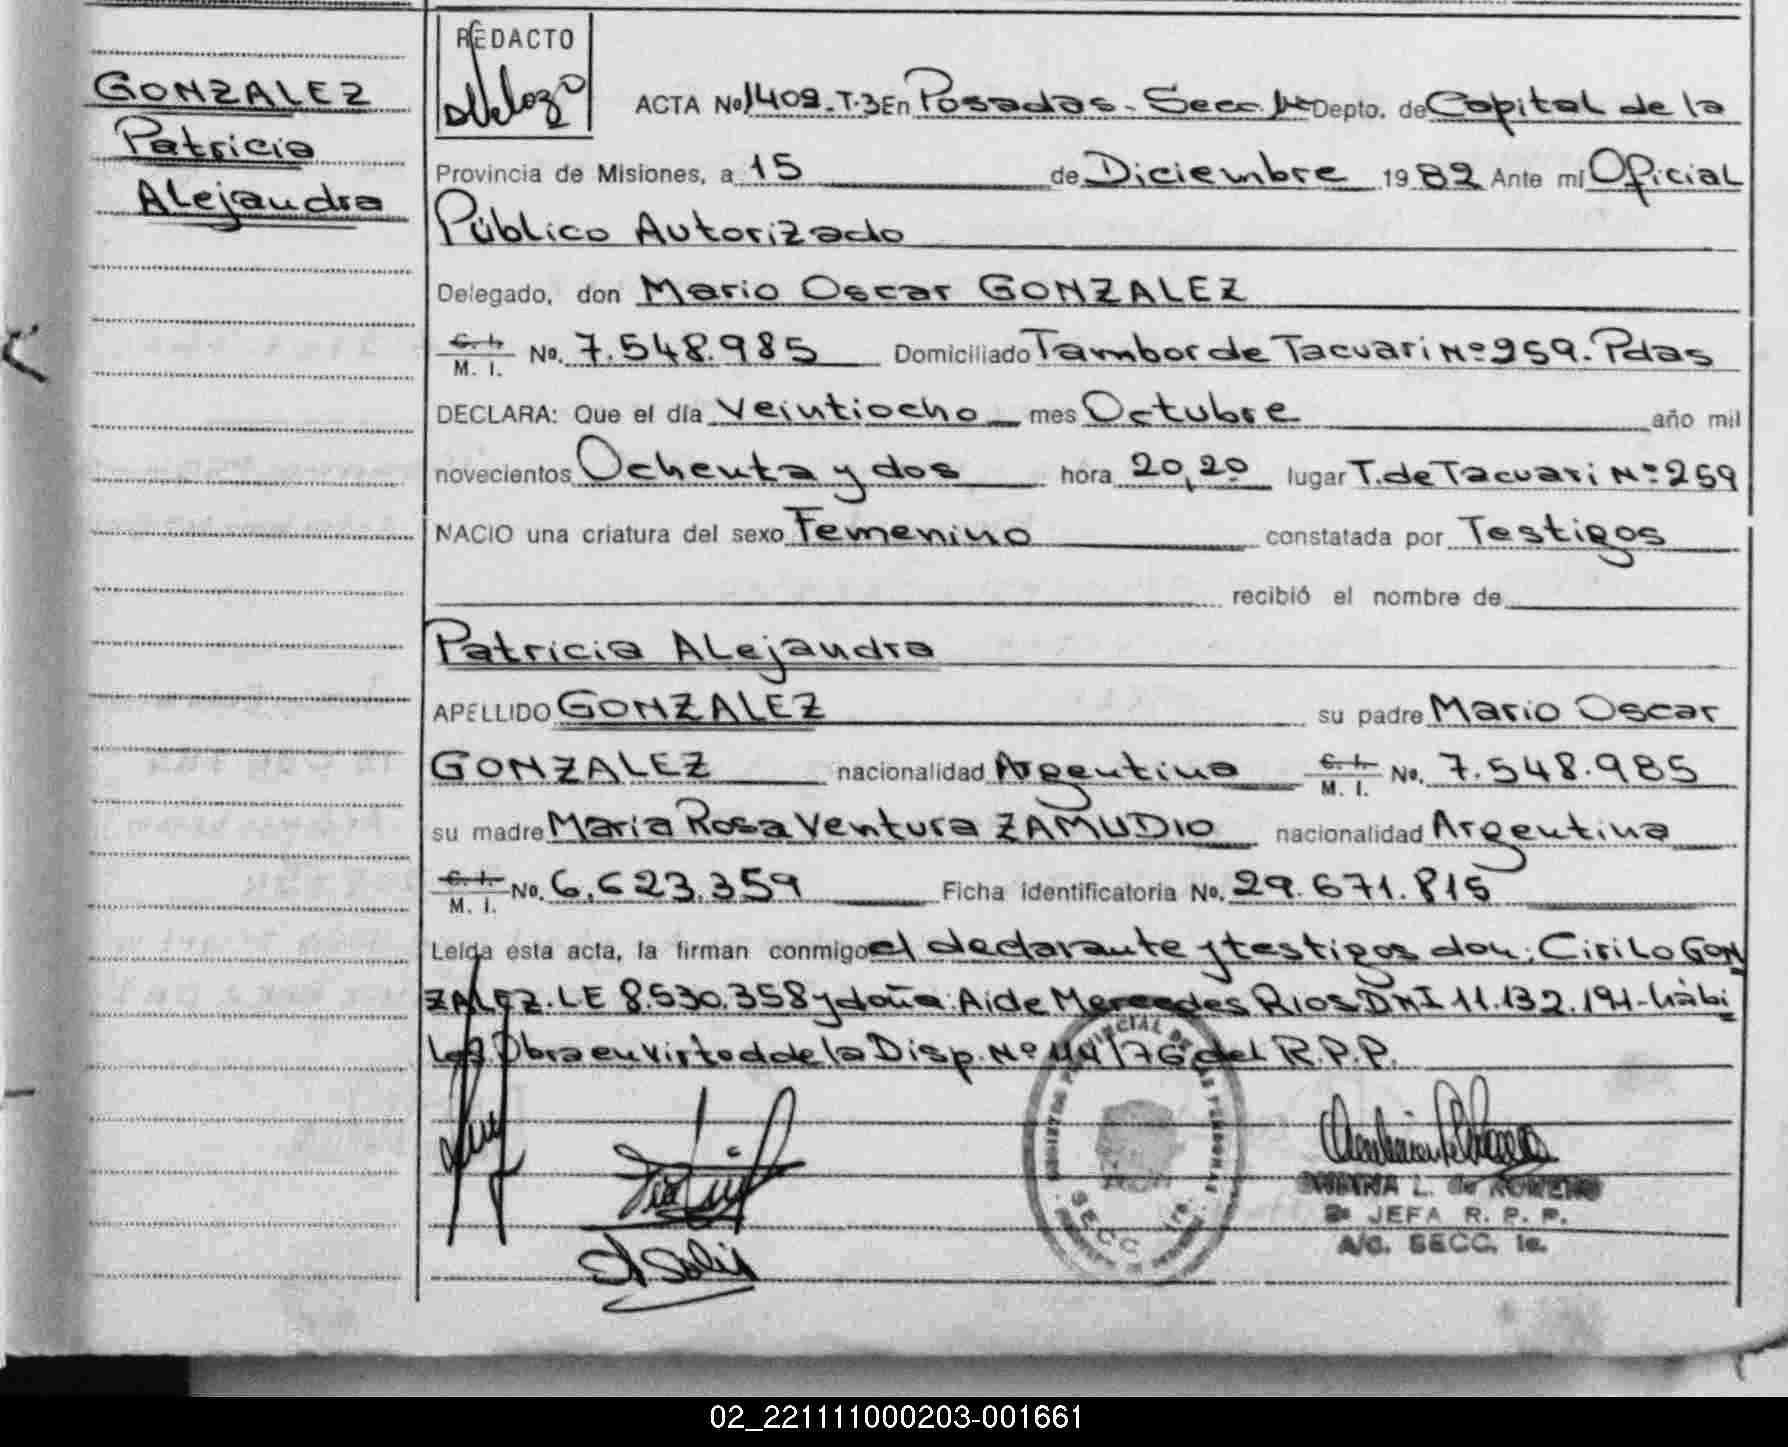 GONZALEZ
Patricia
Alejandra
REDACTO
ACTA No 1409 - T.3 En Posadas - Secc. 1ª Depto. de Capital de la
Provincia de Misiones, a 15 de Diciembre 1982 Ante mi Oficial
Público Autorizado
Delegado, don Mario Oscar GONZALEZ
C. I.
M. I. No. 7.548.985 Domiciliado Tambor de Tacuari Nº 259. Pdas
DECLARA: Que el día veintiocho mes Octubre año mil
novecientos Ochenta y dos hora 20,20 lugar T. de Tacuari Nº 259
NACIO una criatura del sexo Femenino constatada por Testigos
recibió el nombre de
Patricia Alejandra
APELLIDO GONZALEZ su padre Mario Oscar
GONZALEZ nacionalidad Argentina C. I.
M. I. No. 7.548.985
su madre Maria Rosa Ventura ZAMUDIO nacionalidad Argentina
C. I.
M. I. No. 6.623.359 Ficha identificatoria No. 29.671.815
Leída esta acta, la firman conmigo el declarante y testigos don: Cirilo GON
ZALEZ. LE 8.530.358 y doña: Aide Mercedes Rios DNI 11.132.191 - hábi
les. Obra en virtud de la Disp. Nº 44/76 del R.P.P.
REGISTRO PROVINCIAL DE LAS PERSONAS
SECC 1ra.
L. de ROMERO
2ª JEFA R. P. P.
A/C. SECC. 1a.
02_221111000203-001661